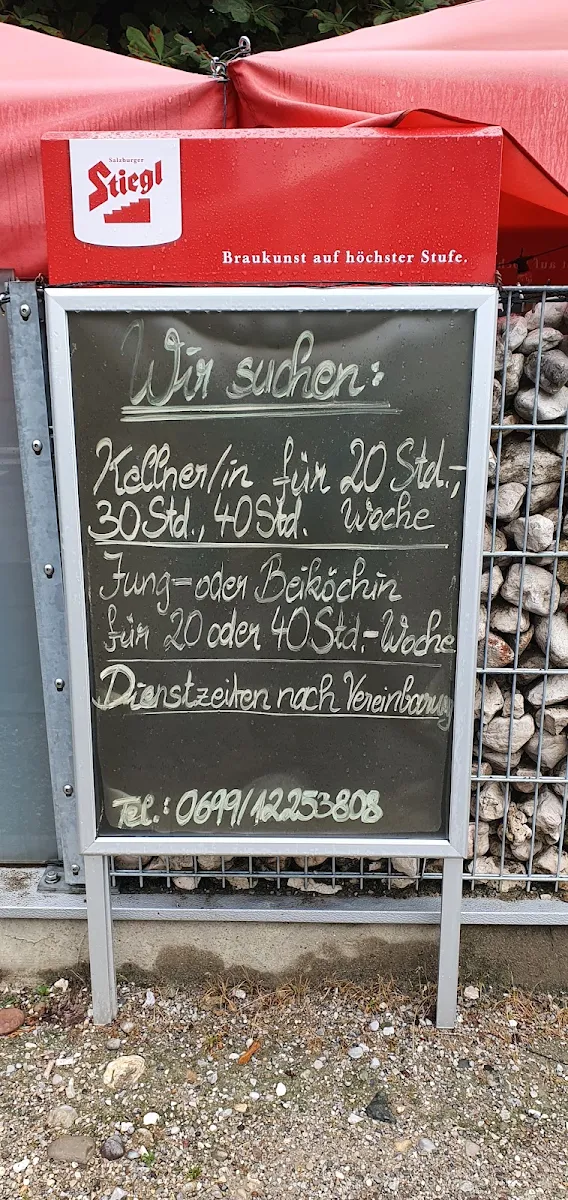 Salzburger
Stiegl
Braukunst auf höchster Stufe.
Wir suchen:
Kellner/in für 20 Std.,-
30 Std., 40 Std. Woche
Jung- oder Beiköchin
für 20 oder 40 Std.-Woche
Dienstzeiten nach Vereinbarung
Tel.: 0699/12253808